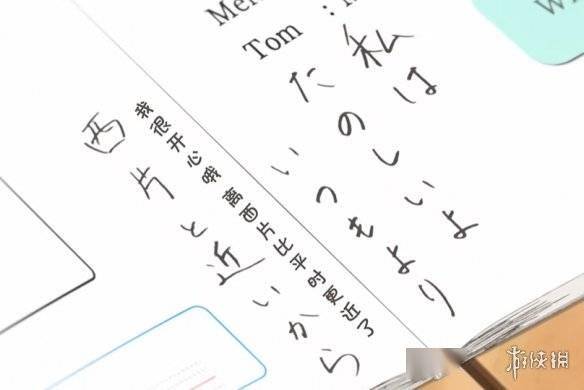 Tom :
私は
たのしいよ
いつもより
西片と近いから
我很开心哦离西片比平时更近了
游侠网